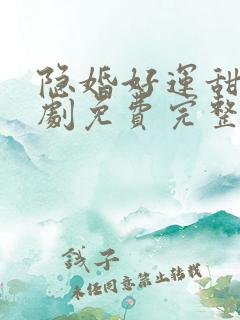 隐婚好運甜
劇免費完整
錢子
未经同意禁止转载